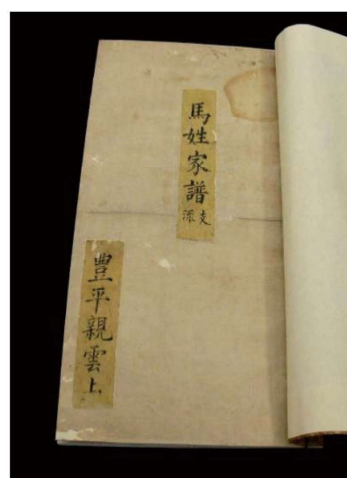 馬姓家譜支流
豊平親雲上